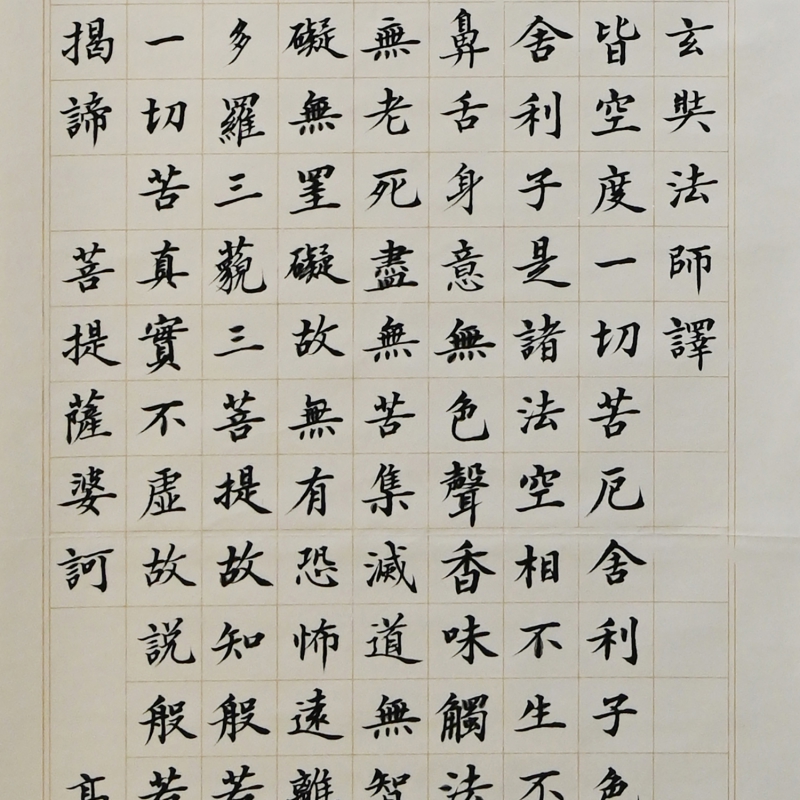 玄奘法師譯
皆空度一切苦厄舍利子色
舍利子是諸法空相不生不
鼻舌身意無色聲香味觸法
無老死盡無苦集滅道無智
礙無罣礙故無有恐怖遠離
多羅三藐三菩提故知般若
一切苦真實不虛故説般若
揭諦 菩提薩婆訶